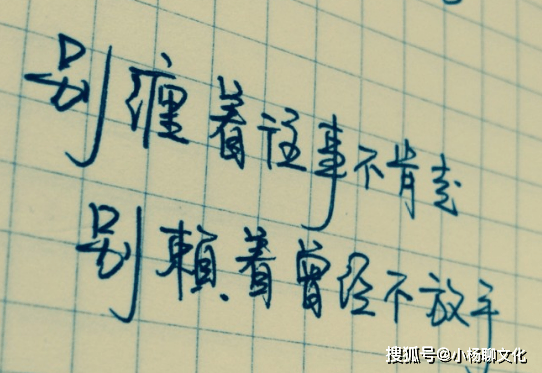 别缠着往事不肯走
别賴着曾经不放手
搜狐号@小杨聊文化